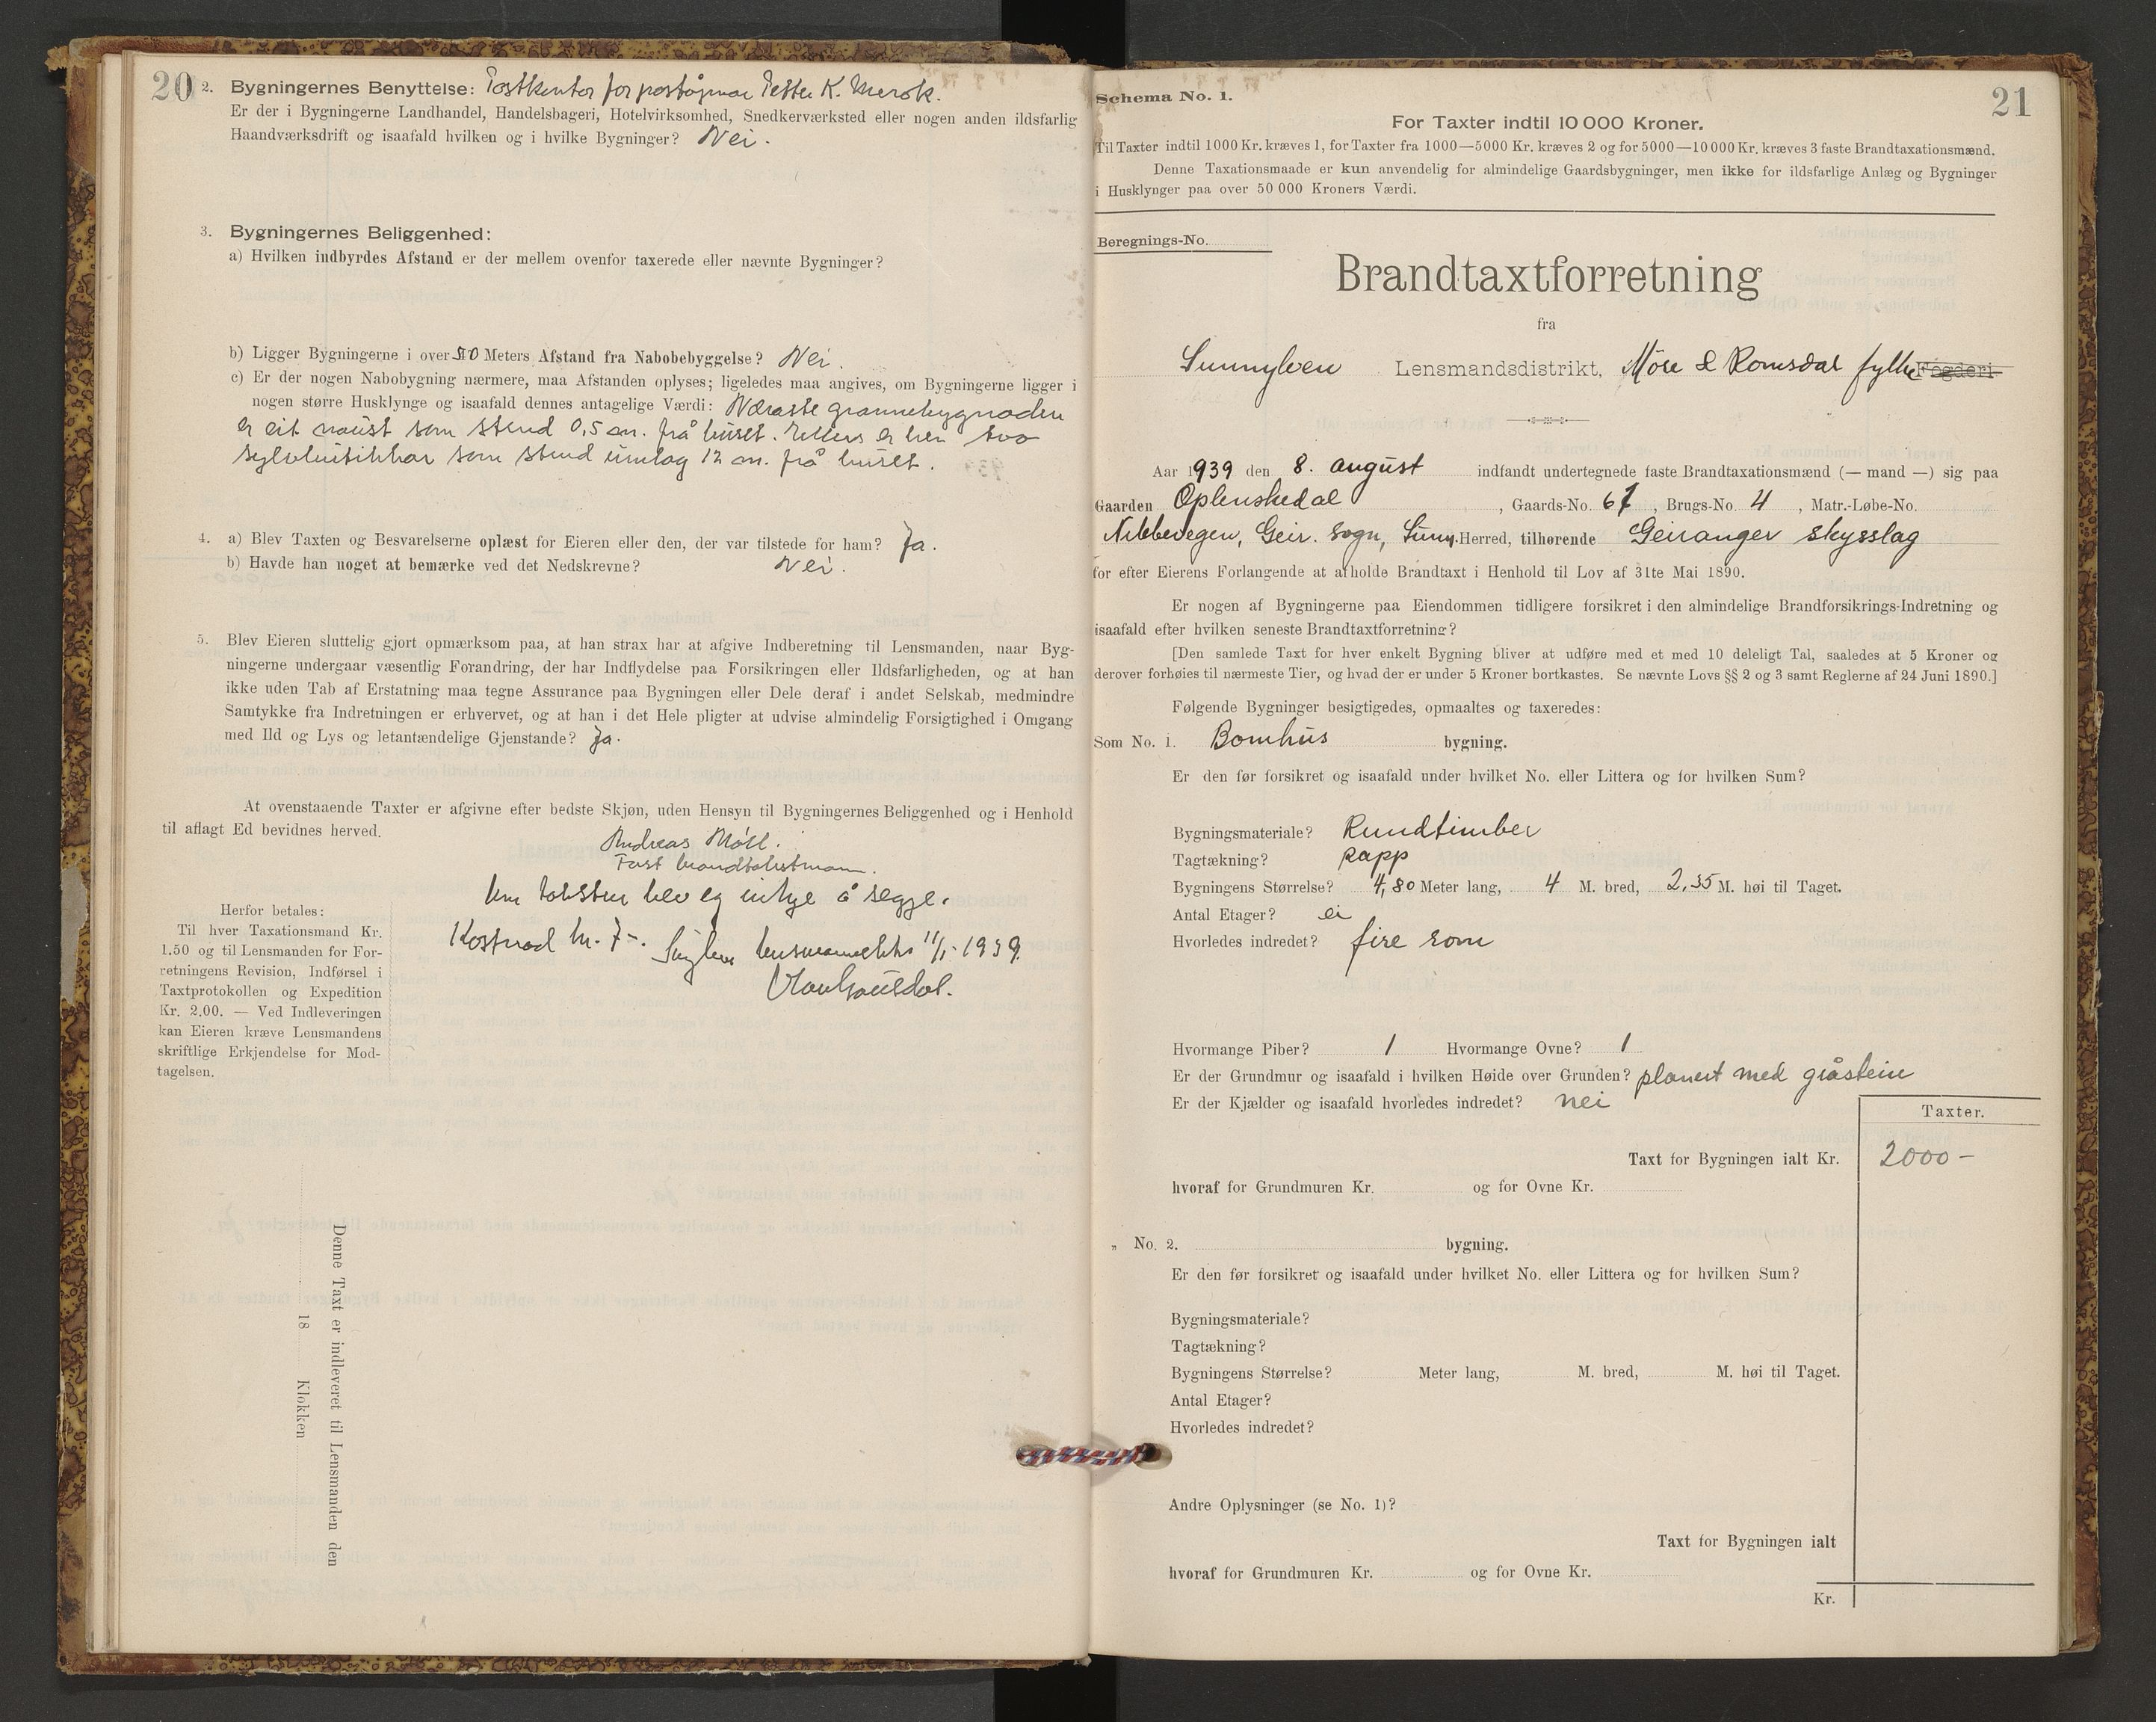 20
2. Bygningernes Benyttelse: Postkontor for postopnar Petter K. Merok.
Er der i Bygningerne Landhandel, Handelsbageri, Hotelvirksomhed, Snedkerværksted eller nogen anden ildsfarlig
Haandværksdrift og isaafald hvilken og i hvilke Bygninger? Nei.
3. Bygningernes Beliggenhed:
a) Hvilken indbyrdes Afstand er der mellem ovenfor taxerede eller nævnte Bygninger?
b) Ligger Bygningerne i over 50 Meters Afstand fra Nabobebyggelse? Nei.
c) Er der nogen Nabobygning nærmere, maa Afstanden oplyses; ligeledes maa angives, om Bygningerne ligger i
nogen større Husklynge og isaafald dennes antagelige Værdi: Næraste grannebygnaden
er eit naust som stend 0,5 m. frå huset. Ellers er her tvo
som stend umlag 12 m. frå huset.
4. a) Blev Taxten og Besvarelserne oplæst for Eieren eller den, der var tilstede for ham? Ja.
b) Havde han noget at bemærke ved det Nedskrevne? Nei.
5. Blev Eieren sluttelig gjort opmærksom paa, at han strax har at afgive Indberetning til Lensmanden, naar Byg-
ningerne undergaar væsentlig Forandring, der har Indflydelse paa Forsikringen eller Ildsfarligheden, og at han
ikke uden Tab af Erstatning maa tegne Assurance paa Bygningen eller Dele deraf i andet Selskab, medmindre
Samtykke fra Indretningen er erhvervet, og at han i det Hele pligter at udvise almindelig Forsigtighed i Omgang
med Ild og Lys og letantændelige Gjenstande? Ja.
At ovenstaaende Taxter er afgivne efter bedste Skjøn, uden Hensyn til Bygningernes Beliggenhed og i Henhold
til aflagt Ed bevidnes herved.
Andreas Möll.
Fast brandtakstmann.
Um taksten hev eg inkje å segje.
Kostnad kr. 7-. 1939.
Herfor betales:
Til hver Taxationsmand Kr.
1.50 og til Lensmanden for For-
retningens Revision, Indførsel i
Taxtprotokollen og Expedition
Kr. 2.00. — Ved Indleveringen
kan Eieren kræve Lensmandens
skriftlige Erkjendelse for Mod-
tagelsen.
Denne Taxt er indleveret til Lensmanden den
18 Klokken
21
Schema No. 1.
For Taxter indtil 10 000 Kroner.
Til Taxter indtil 1000 Kr. kræves 1, for Taxter fra 1000—5000 Kr. kræves 2 og for 5000—10 000 Kr. kræves 3 faste Brandtaxationsmænd.
Denne Taxationsmaade er kun anvendelig for almindelige Gaardsbygninger, men ikke for ildsfarlige Anlæg og Bygninger
i Husklynger paa over 50 000 Kroners Værdi.
Beregnings-No.
Brandtaxtforretning
fra
Sunnylven Lensmandsdistrikt, Möre & Romsdal fylke Fogderi.
Aar 1939 den 8. august indfandt undertegnede faste Brandtaxationsmænd (— mand —) sig paa
Gaarden Oplenskedal, Gaards-No. 61, Brugs-No. 4, Matr.-Løbe-No.
Nibbevegen, Geir. sogn, Sunn. Herred, tilhørende Geiranger skysslag
for efter Eierens Forlangende at afholde Brandtaxt i Henhold til Lov af 31te Mai 1890.
Er nogen af Bygningerne paa Eiendommen tidligere forsikret i den almindelige Brandforsikrings-Indretning og
isaafald efter hvilken seneste Brandtaxtforretning?
[Den samlede Taxt for hver enkelt Bygning bliver at udføre med et med 10 deleligt Tal, saaledes at 5 Kroner og
derover forhøies til nærmeste Tier, og hvad der er under 5 Kroner bortkastes. Se nævnte Lovs §§ 2 og 3 samt Reglerne af 24 Juni 1890.]
Følgende Bygninger besigtigedes, opmaaltes og taxeredes:
Som No. 1. Bomhus bygning.
Er den før forsikret og isaafald under hvilket No. eller Littera og for hvilken Sum?
Bygningsmateriale? Rundtimber
Tagtækning? Papp
Bygningens Størrelse? 4,80 Meter lang, 4 M. bred, 2,35 M. høi til Taget.
Antal Etager? ei
Hvorledes indredet? fire rom
Hvormange Piber? 1 Hvormange Ovne? 1
Er der Grundmur og isaafald i hvilken Høide over Grunden? planert med gråstein
Er der Kjælder og isaafald hvorledes indredet? nei
Taxter.
Taxt for Bygningen ialt Kr. 2000-
hvoraf for Grundmuren Kr. og for Ovne Kr.
„ No. 2. bygning.
Er den før forsikret og isaafald under hvilket No. eller Littera og for hvilken Sum?
Bygningsmateriale?
Tagtækning?
Bygningens Størrelse? Meter lang, M. bred, M. høi til Taget.
Antal Etager?
Hvorledes indredet?
Andre Oplysninger (se No. 1)?
Taxt for Bygningen ialt
hvoraf for Grundmuren Kr. og for Ovne Kr.
Kr.